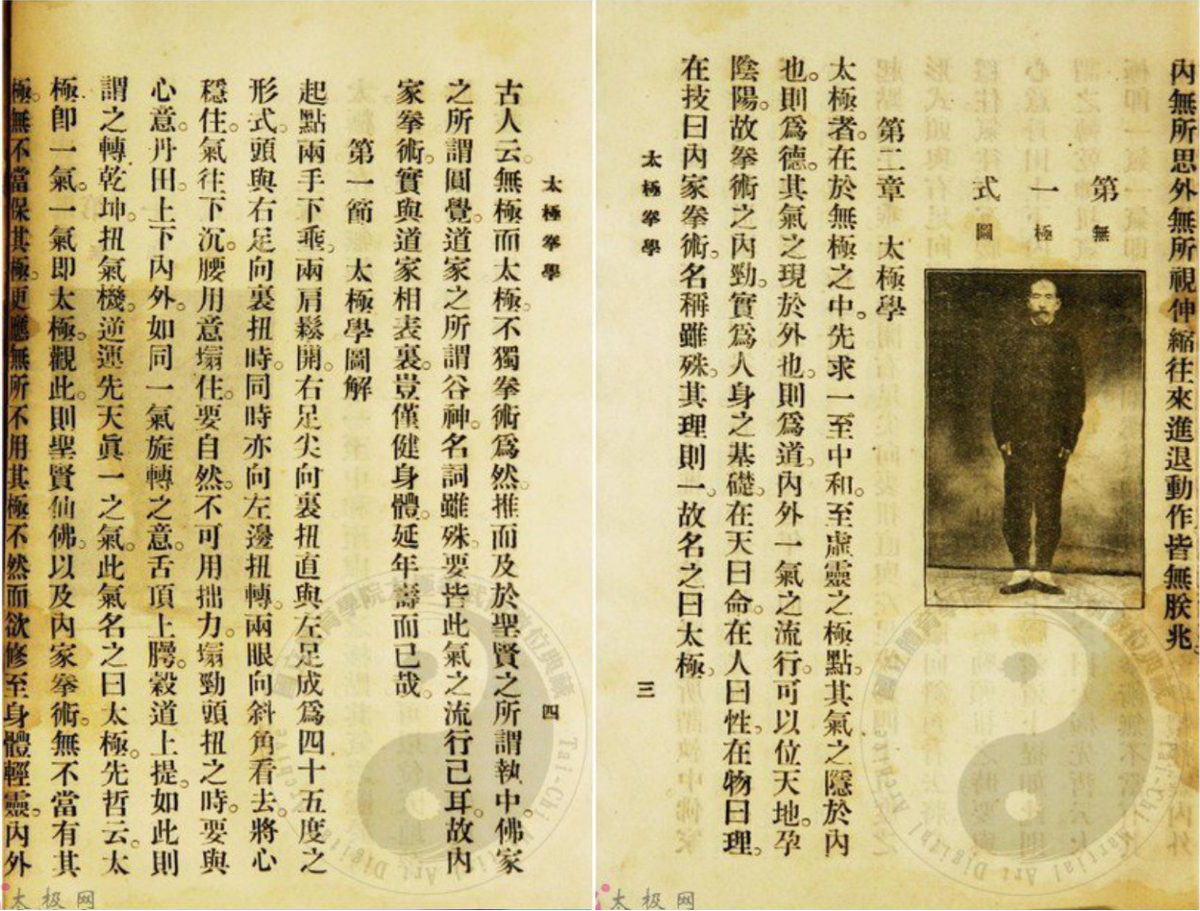 內無所思外無所視伸縮往來進退動作皆無朕兆。
第一式
無極圖
第二章 太極學
太極者。在於無極之中。先求一至中和。至虛靈之極點。其氣之隱於內
也。則爲德。其氣之現於外也。則爲道。內外一氣之流行。可以位天地。孕
陰陽。故拳術之內勁。實爲人身之基礎。在天曰命。在人曰性。在物曰理。
在技曰內家拳術。名稱雖殊。其理則一。故名之曰太極。
太極拳學
三
太極拳學
四
古人云。無極而太極。不獨拳術爲然。推而及於聖賢之所謂執中。佛家
之所謂圓覺。道家之所謂谷神。名詞雖殊。要皆此氣之流行己耳。故內
家拳術。實與道家相表裏。豈僅健身體。延年壽而已哉。
第一節 太極學圖解
起點兩手下乖。兩肩鬆開。右足尖向裏扭直與左足成爲四十五度之
形式。頭與右足向裏扭時。同時亦向左邊扭轉。兩眼向斜角看去。將心
穩住。氣往下沉。腰用意塌住。要自然。不可用拙力。塌勁頭扭之時。要與
心意。丹田。上下內外。如同一氣旋轉之意。舌頂上腭。穀道上提。如此則
謂之轉乾坤。扭氣機。逆運先天眞一之氣。此氣名之曰太極。先哲云。太
極卽一氣。一氣即太極。觀此。則聖賢仙佛。以及內家拳術。無不當有其
極。無不當保其極。更應無所不用其極不然而欲修至身體輕靈。內外
國立體育學院太極武藝數位典藏
Tai-Chi Martial Art Digital Archive
太极网
太极网